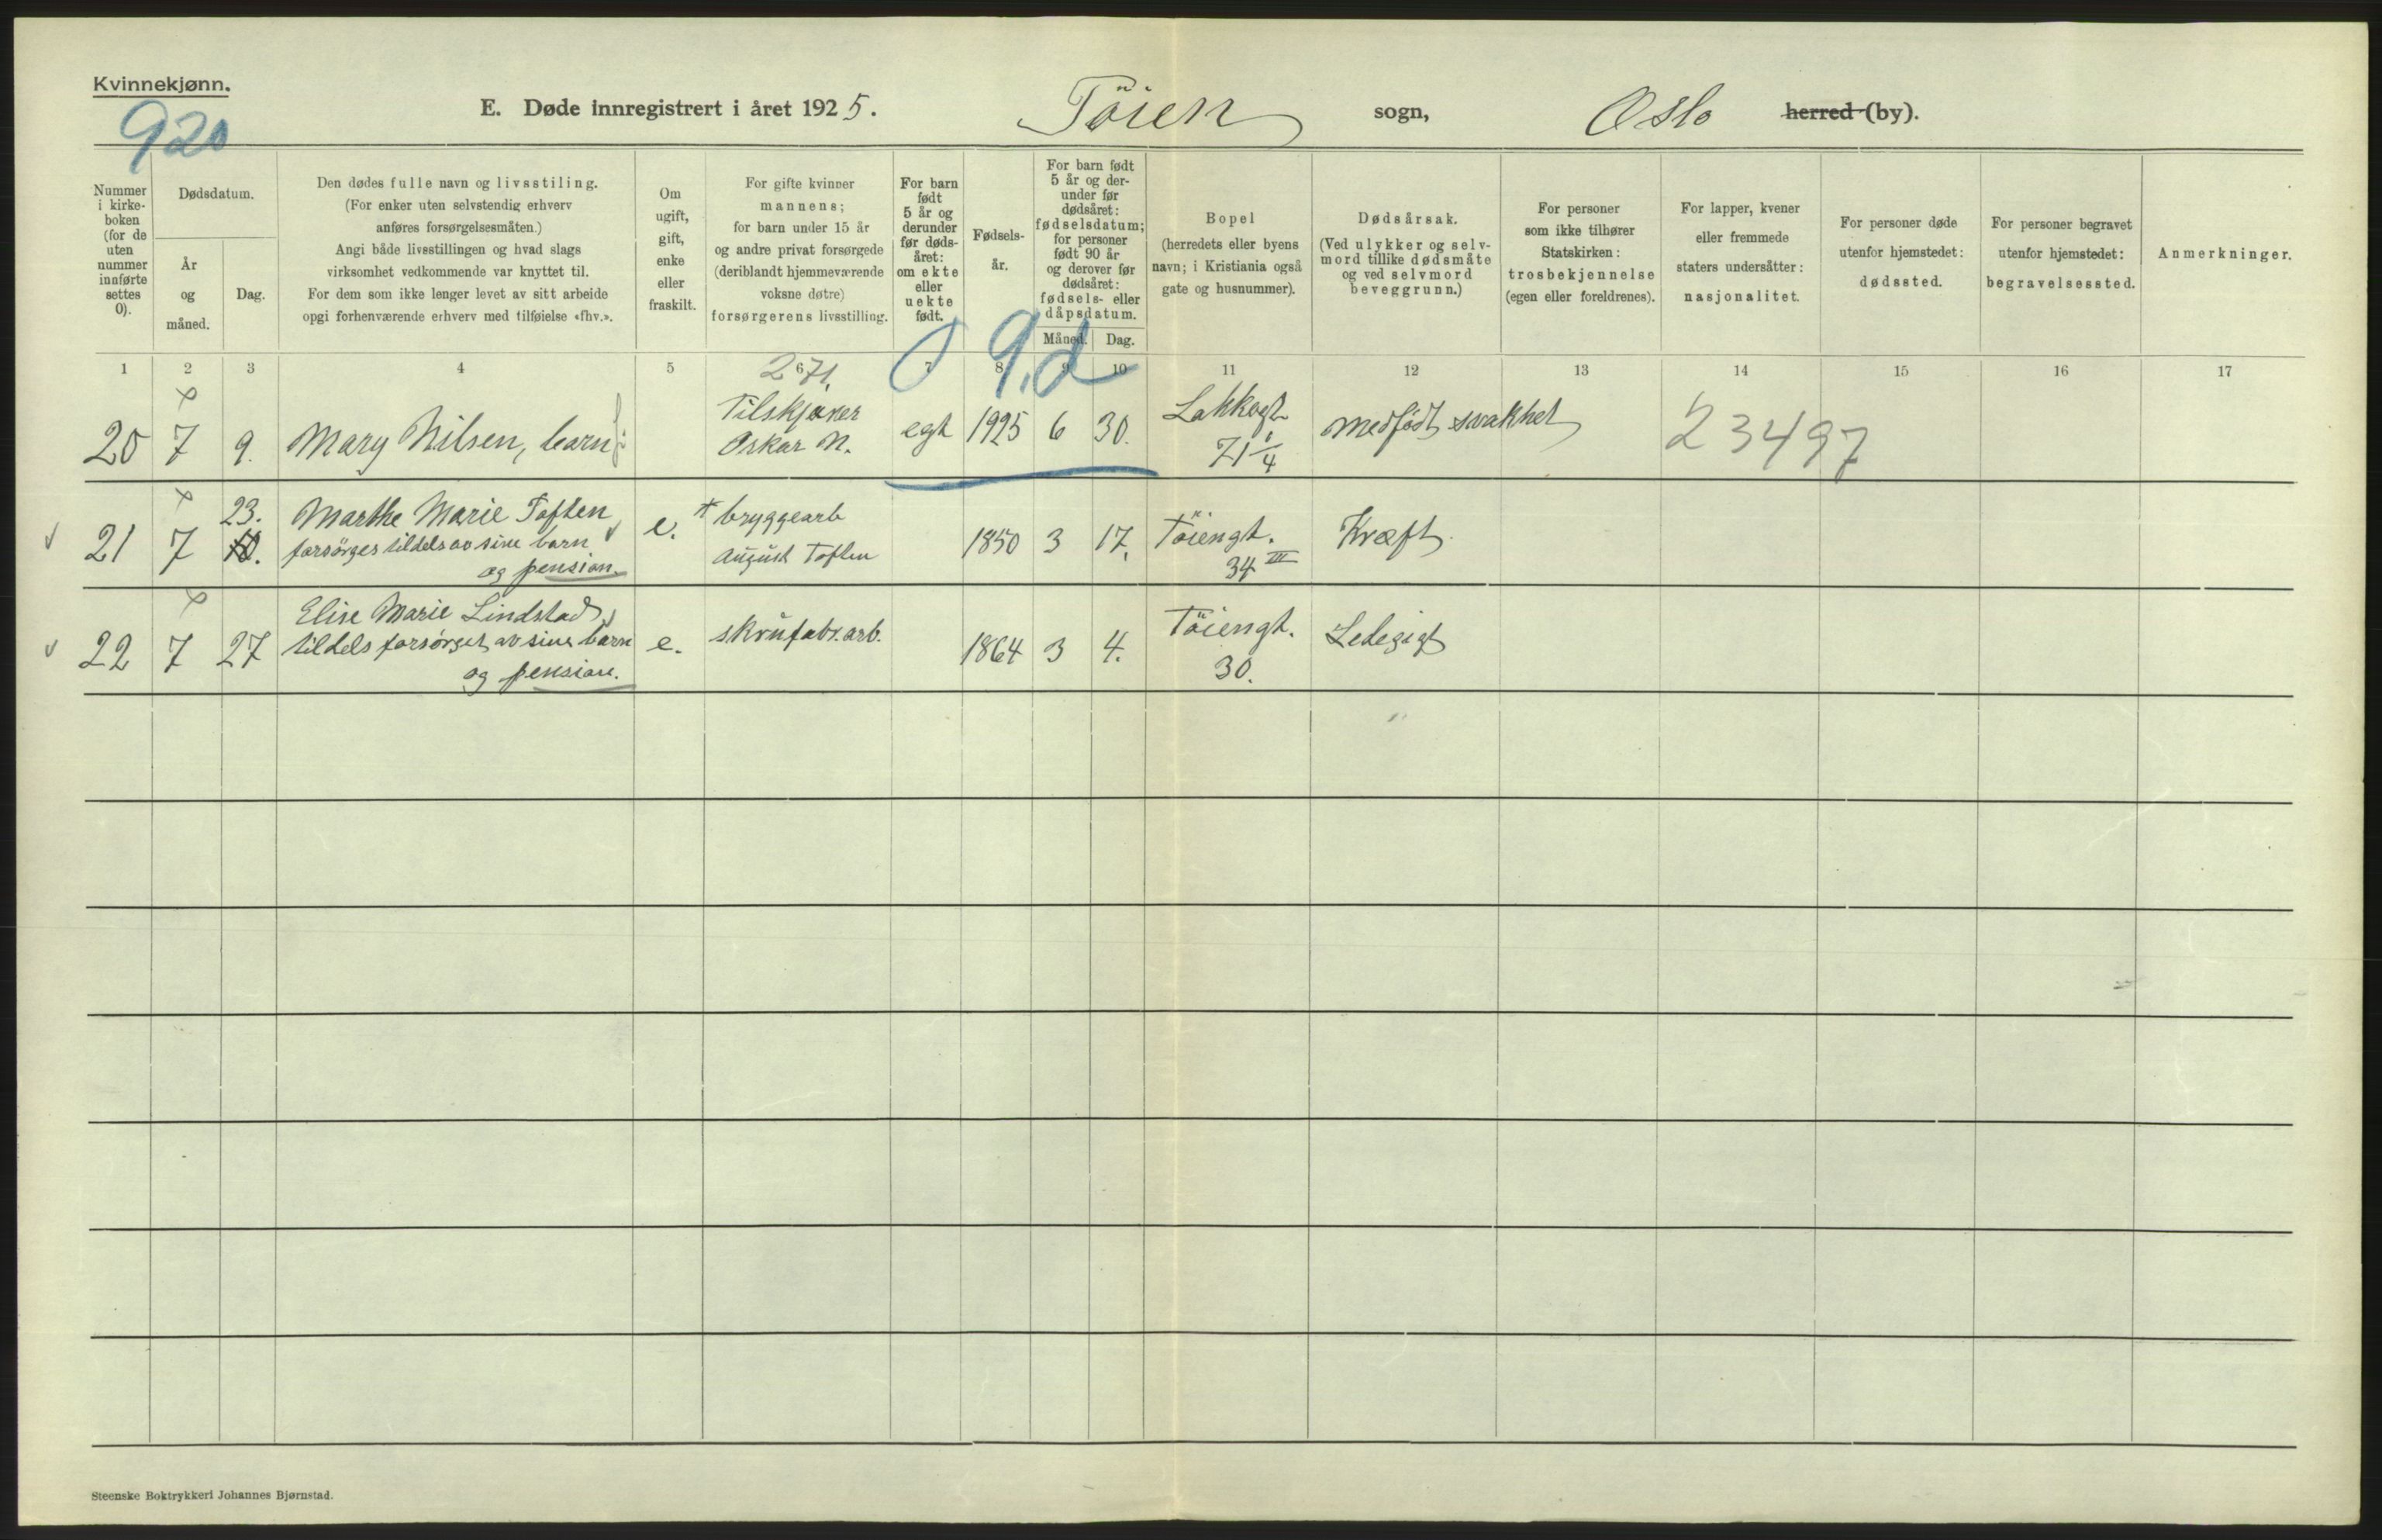 Kvinnekjønn.
920
E. Døde innregistrert i året 1925. Töien sogn, Oslo herred (by).
Nummer i kirke-boken (for de uten nummer innførte settes 0).
Dødsdatum.
År og måned.
Dag.
Den dødes fulle navn og livsstiling.
(For enker uten selvstendig erhverv
anføres forsørgelsesmåten.)
Angi både livsstillingen og hvad slags
virksomhet vedkommende var knyttet til.
For dem som ikke lenger levet av sitt arbeide
opgi forhenværende erhverv med tilføielse «fhv.».
Om
ugift,
gift,
enke
eller
fraskilt.
For gifte kvinner
mannens;
for barn under 15 år
og andre privat forsørgede
(deriblandt hjemmeværende
voksne døtre)
forsørgerens livsstilling.
For barn
født
5 år og
derunder
før døds-
året:
om ekte
eller
uekte
født.
Fødsels-
år.
For barn født
5 år og der-
under før
dødsåret:
fødselsdatum;
for personer
født 90 år
og derover før
dødsåret:
fødsels- eller
dåpsdatum.
Måned. Dag.
Bopel
(herredets eller byens
navn; i Kristiania også
gate og husnummer).
Dødsårsak.
(Ved ulykker og selv-
mord tillike dødsmåte
og ved selvmord
beveggrunn.)
For personer
som ikke tilhører
Statskirken:
trosbekjennelse
(egen eller foreldrenes).
For lapper, kvener
eller fremmede
staters undersåtter:
nasjonalitet.
For personer døde
utenfor hjemstedet:
dødssted.
For personer begravet
utenfor hjemstedet:
begravelsessted.
Anmerkninger.
1 2 3 4 5 6 7 8 9 10 11 12 13 14 15 16 17
271.
9.d
20 7 9. Mary Nilsen, barn Oskar N. egt 1925 6 30. Lakkegt. 71 1/4 medfödt svakhet 23497
21 7 23. 10. Marthe Marie Toften
forsörges tildels av sine barn
og pension. e. + bryggearb
August Toften 1850 3 17. Töiengt.
34 III Kræft.
22 7 27 Elise Marie Lindstad,
tildels forsörget av sine barn
og pension. e. skrufabr.arb. 1864 3 4. Töiengt.
30. Ledegigt
Steenske Boktrykkeri Johannes Bjørnstad.